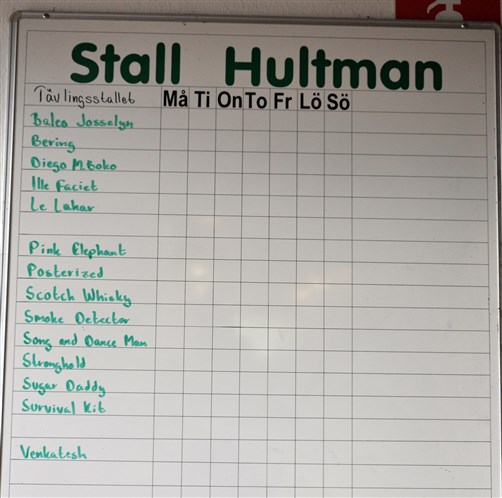 Stall Hultman
Tävlingsstallet Må Ti On To Fr Lö Sö
Balco Josselyn
Bering
Diego M.Boko
Ille Faciet
Le Lahar
Pink Elephant
Posterized
Scotch Whisky
Smoke Detector
Song and Dance Man
Stronghold
Sugar Daddy
Survival Kit
Venkatesh